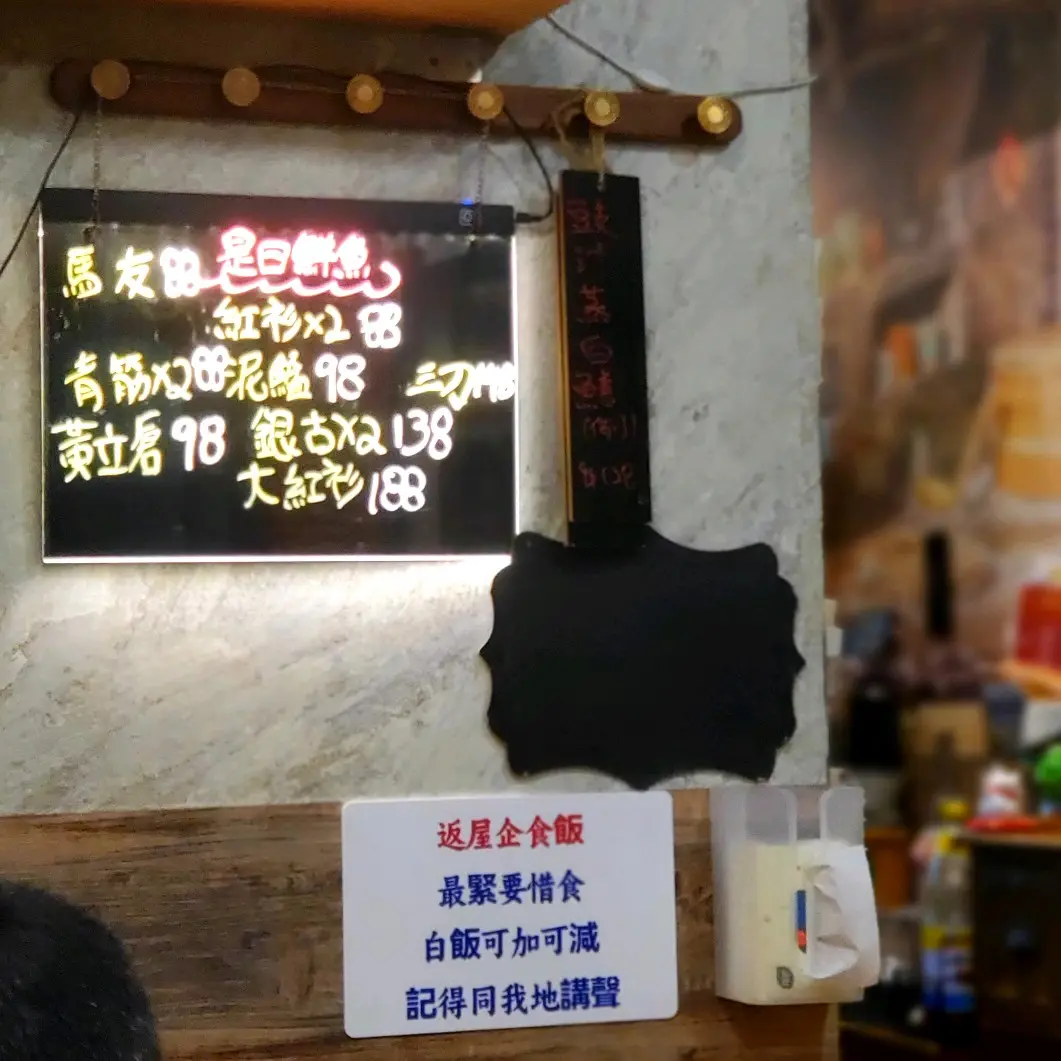 是日鮮魚
馬友 88
紅衫x2 98
青筋x2 88 泥鯭 98 三刀 148
黃立倉 98 銀古x2 138
大紅衫 188
豉汁蒸白鱔
返屋企食飯
最緊要惜食
白飯可加可減
記得同我地講聲